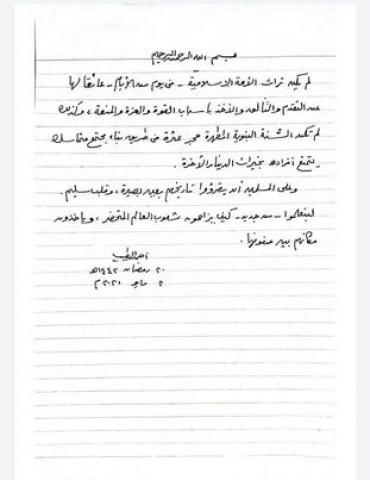 بسم الله الرحمن الرحيم
لم يكن تراث الأمة الإسلامية - في يوم من الأيام - عائقا لها
عن التقدم والتألق والأخذ بأسباب القوة والعزة والمنعة ، وكذلك
لم تكن السنة النبوية المطهرة حجر عثرة في طريق بناء مجتمع متماسك
يتمتع أفراده بخيرات الدنيا والآخرة .
وعلى المسلمين أن يقرؤوا تاريخهم بعين بصيرة ، وقلب سليم .
ليتعلموا - من جديد - كيف يزاحمون شعوب العالم المتحضر ، ويأخذون
مكانهم بين صفوفها .
أحمد الطيب
٢٠ رمضان ١٤٤٢هـ
٢ مايو ٢٠٢١م